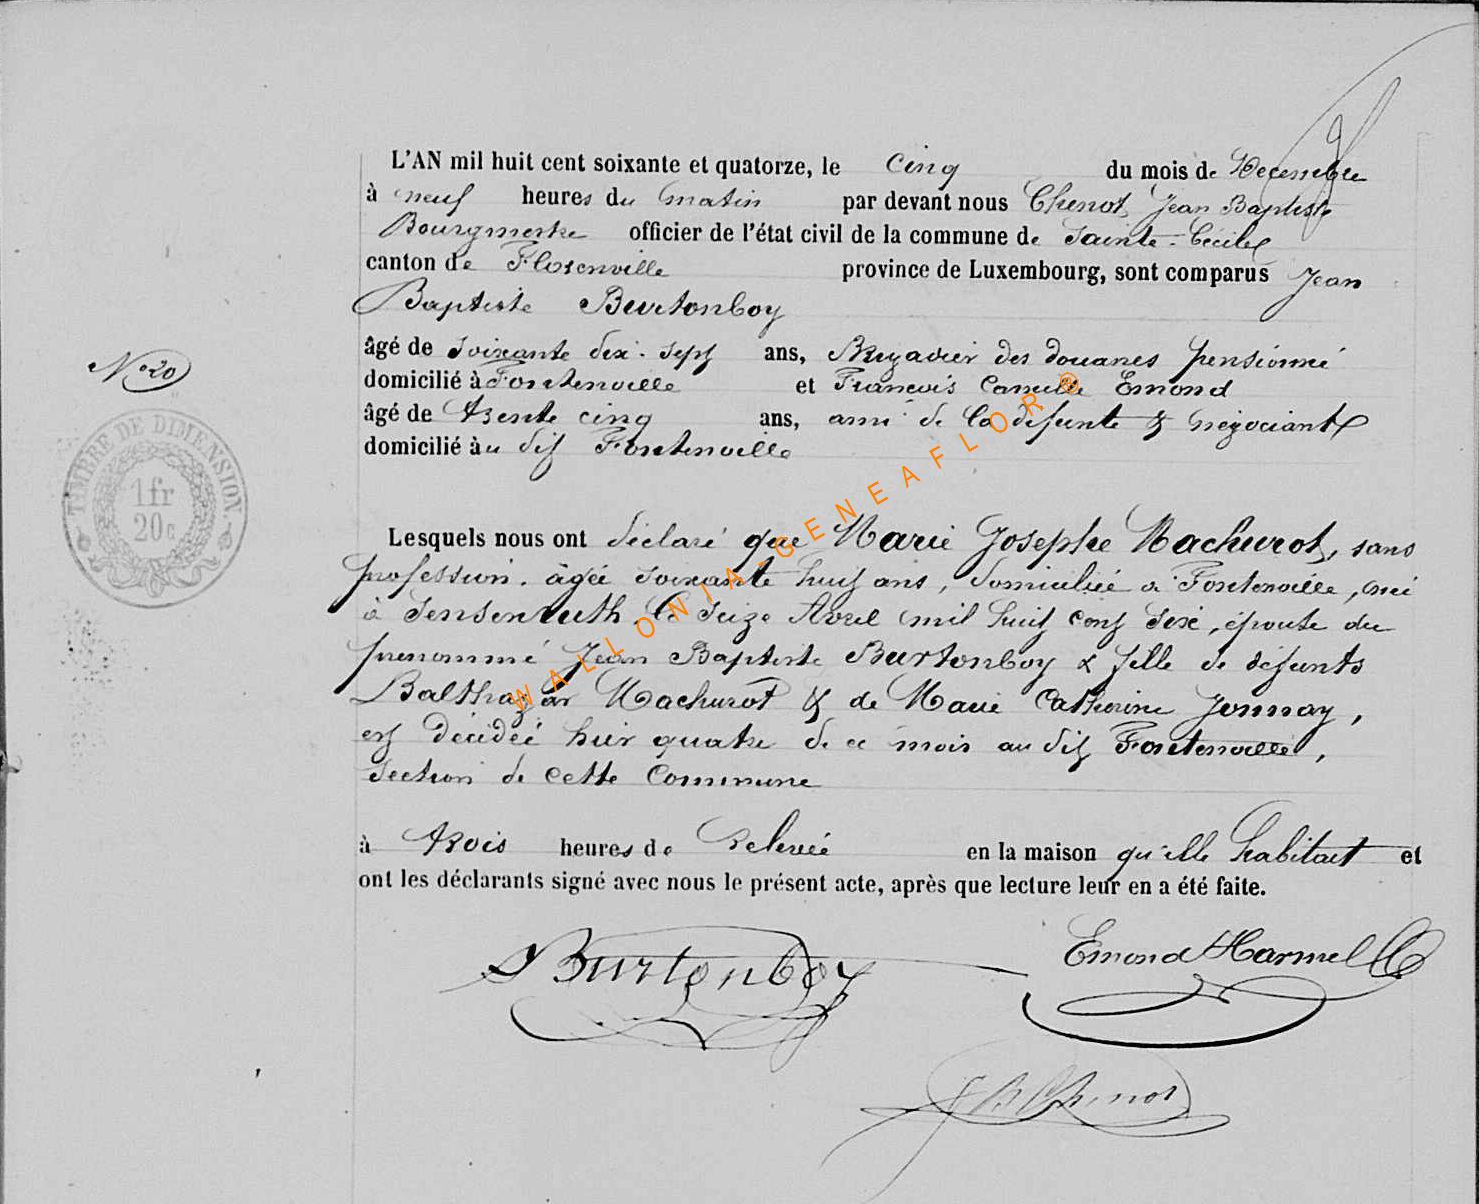 L'AN mil huit cent soixante et quatorze, le cinq du mois de Decembre
à neuf heures du matin par devant nous Chenot Jean Baptiste
Bourgmestre officier de l'état civil de la commune de Sainte-Cécile
canton de Florenville province de Luxembourg, sont comparus Jean
Baptiste Burtonboy
âgé de soixante dix-sept ans, Brigadier des douanes pensionné
domicilié à Fontenoille et Francois Camille Emond
âgé de trente cinq ans, ami de la défunte & négociant
domicilié au dit Fontenoille
N° 20
TIMBRE DE DIMENSION.
1fr
20c
Lesquels nous ont déclaré que Marie Josephe Machurot, sans
profession. âgée soixante huit ans, domiciliée à Fontenoille, née
à Sensenruth, le seize Avril mil huit cent six, épouse du
prenommé Jean Baptiste Burtonboy & fille de défunts
Balthazar Machurot & de Marie Catherine Jonnay,
est décédée hier quatre de ce mois au dit Fontenoille,
section de cette Commune
à trois heures de relevée en la maison qu'elle habitait et
ont les déclarants signé avec nous le présent acte, après que lecture leur en a été faite.
Burtonboy
Emond Harmel
JB Chenot
WALLONIA-GENEAFLOR®